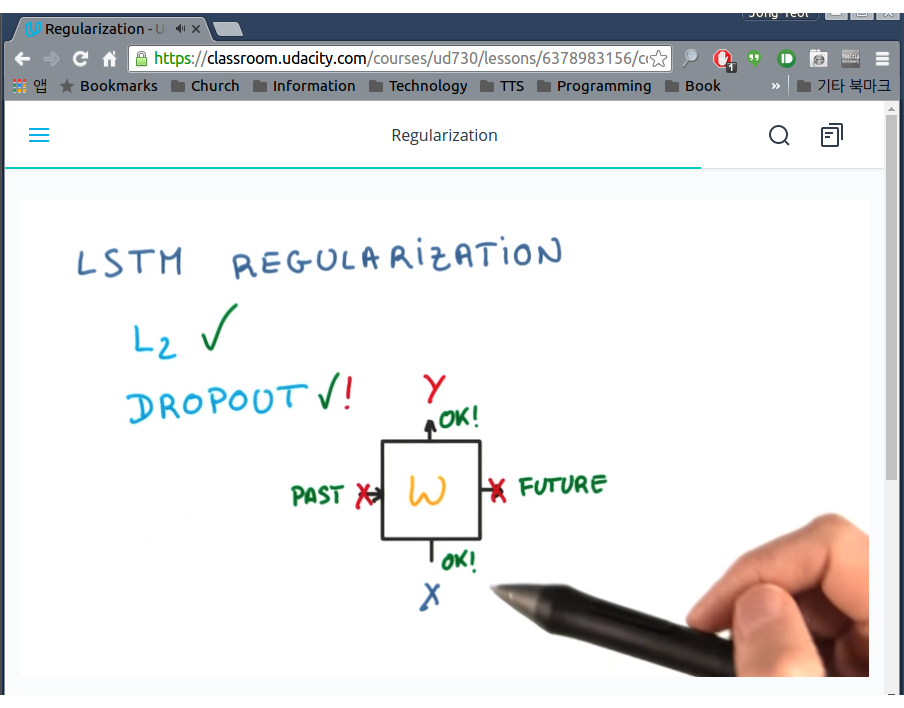 Regularization - U
Jong Yeol
https://classroom.udacity.com/courses/ud730/lessons/6378983156/co
1
앱 Bookmarks Church Information Technology TTS Programming Book » 기타 북마크
Regularization
LSTM REGULARIZATION
L2 ✓
DROPOUT ✓!
Y
OK!
PAST X W X FUTURE
OK!
X